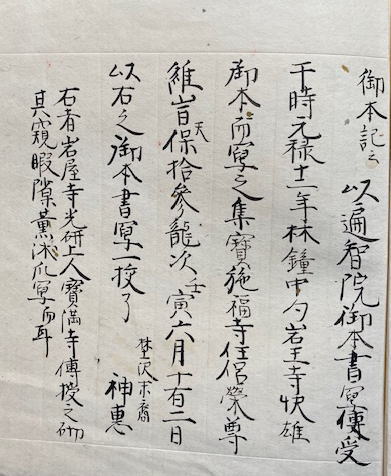 御本記云 以遍智院御本書冩傳受
于時元禄十一年林鐘中旬岩王寺快雄
御本而冩之集寶施福寺住侶榮尊
維旹天保拾參龍次壬寅六月十有二日
以右之御本書冩一授了
埜沢末裔 神惠
右者岩屋寺光研上人寶満寺傳授之砌
其窺暇隙薫沐爪冩而耳